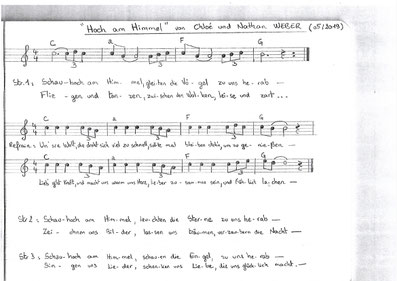 "Hoch am Himmel" von Chloé und Nathan WEBER (05/2019)
C a F G
3 3
Str. 1: Schau hoch am Him- mel, glei-ten die Vö- gel zu uns he- rab —
Flie - gen und tan- zen, zwi-schen den Wol-ken, lei-se und zart ...
C a F G
3 3
Refrain: Uns're Welt, die dreht sich viel zu schnell,
3 3
Lie- gibt Kraft, und macht uns warm ums Herz, lie-ber zu-sam-men sein, und la-chen —
Str 2: Schau hoch am Him- mel, leuch-ten die Ster-ne zu uns he-rab —
Zei - chnen uns Bil- der, las-sen uns träu-men, ver-zau-bern die Nacht —
Str 3: Schau hoch am Him- mel, schau-en die En-gel, zu uns he-rab —
Sin - gen uns Lie- der, schen-ken uns Lie- be, die uns glück-lich macht. —